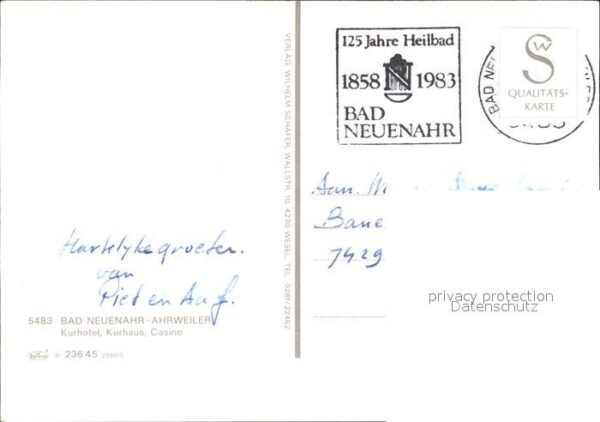 125 Jahre Heilbad
1858 1983
BAD
NEUENAHR
BAD NE
SW
QUALITÄTS-
KARTE
VERLAG WILHELM SCHÄFER, WALLSTR. 10, 4230 WESEL, TEL. 0281/22462
Aan
7429
Hartelyke groeten.
van
Piet en
5483 BAD NEUENAHR-AHRWEILER
Kurhotel, Kurhaus, Casino
236.45
privacy protection
Datenschutz